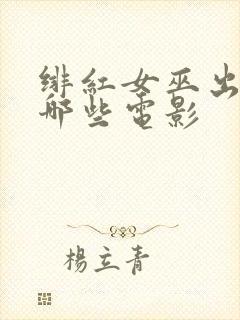 绯紅女巫出
哪些電影
楊立青